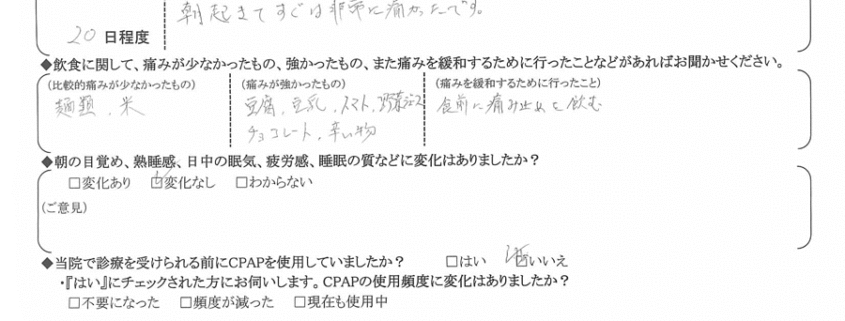 朝起きてすぐは非常に痛かったです。
20 日程度
◆飲食に関して、痛みが少なかったもの、強かったもの、また痛みを緩和するために行ったことなどがあればお聞かせください。
(比較的痛みが少なかったもの) (痛みが強かったもの) (痛みを緩和するために行ったこと)
麺類、米 豆腐、豆乳、トマト、野菜ジュース 食前に痛み止めを飲む
チョコレート、辛い物
◆朝の目覚め、熟睡感、日中の眠気、疲労感、睡眠の質などに変化はありましたか？
□変化あり ☑変化なし □わからない
(ご意見)
◆当院で診療を受けられる前にCPAPを使用していましたか？ □はい ☑いいえ
・『はい』にチェックされた方にお伺いします。CPAPの使用頻度に変化はありましたか？
□不要になった □頻度が減った □現在も使用中